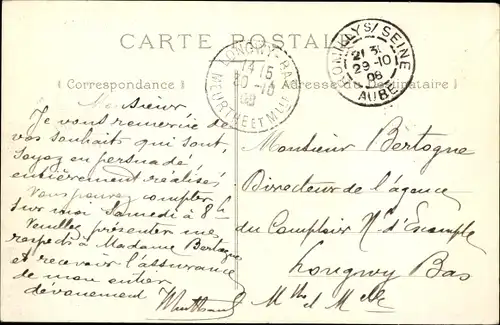 CARTE POSTALE
( Correspondance )
Adresse du Destinataire )
LONGWY-BAS
14 15
30-10
08
MEURTHE ET MLLE
ROMILLY S/ SEINE
29-10
08
AUBE
Monsieur
Je vous remercie de
vos souhaits qui sont,
Soyez en persuadé,
entièrement réalisés
Vous pouvez compter
sur moi Samedi à 8h
Veuillez présenter mes
respects à Madame Bertogne
et recevoir l'assurance
de mon entier
dévouement
Monsieur Bertogne
Directeur de l'agence
du Comptoir Nal d'Escompte
Longwy Bas
Mthe et Mlle